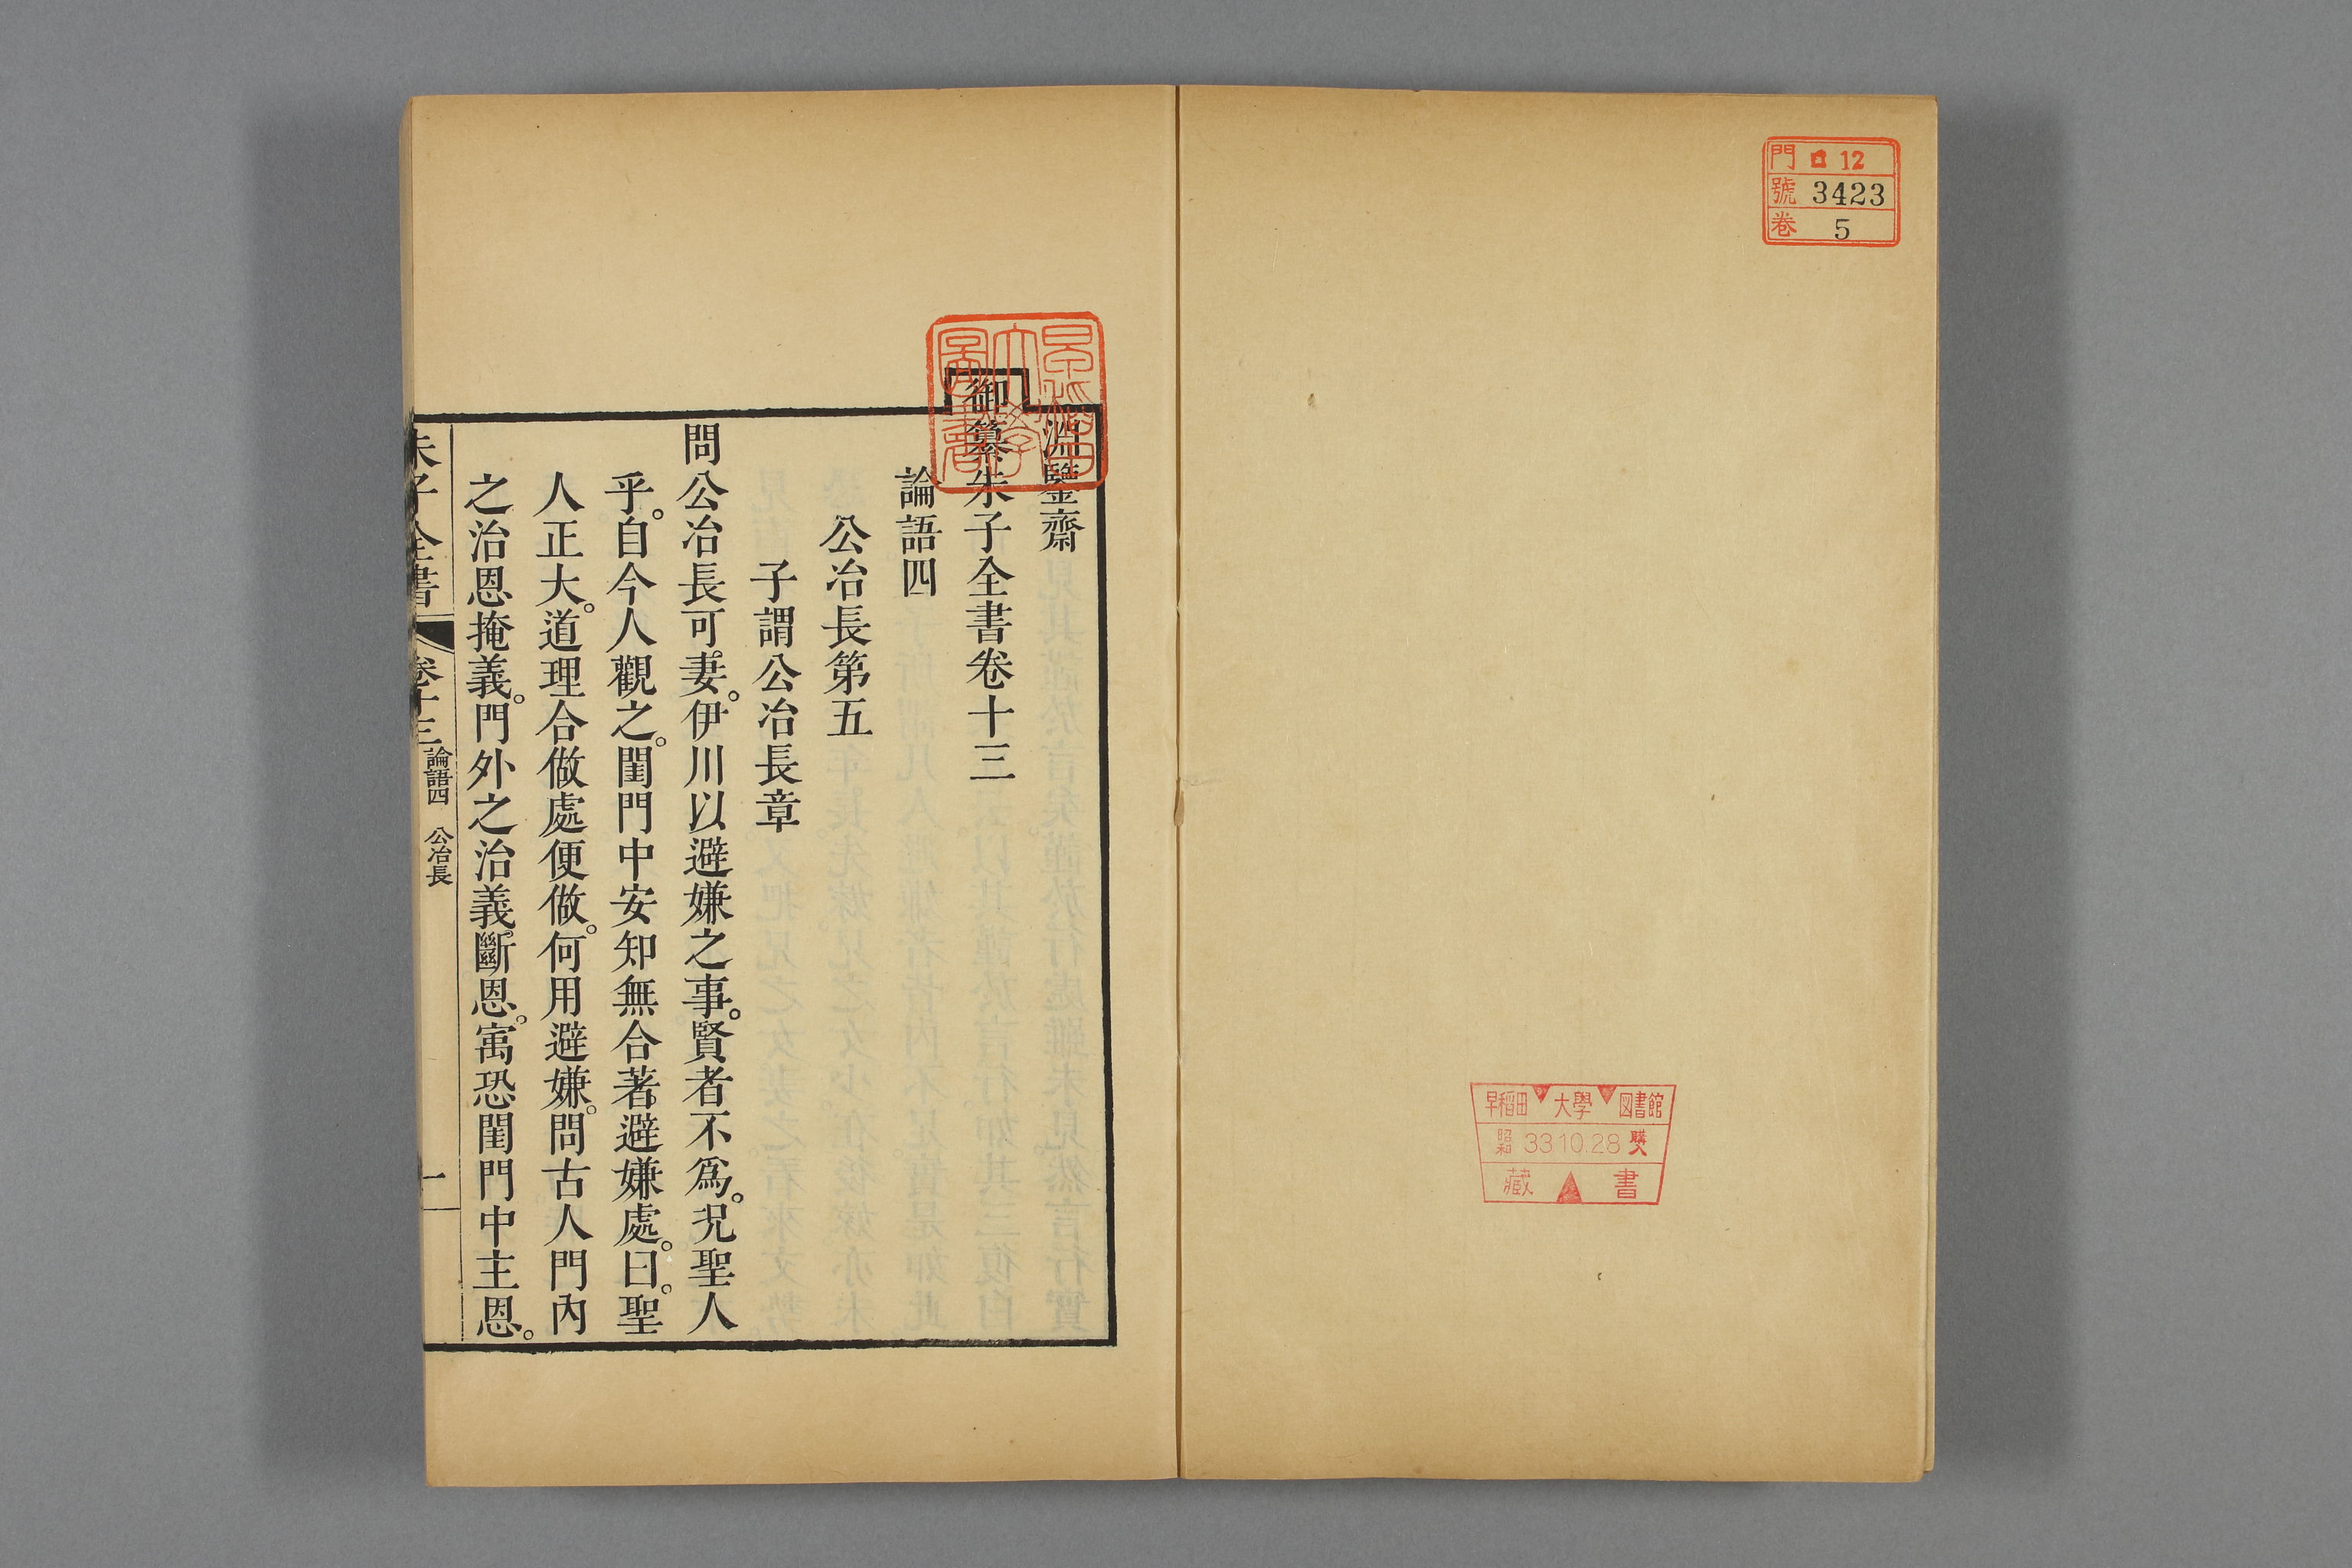 門 ロ 12
號 3423
卷 5
早稻田 大學 図書館
昭和 33.10.28 購
藏 書
淵鑒齋
御纂朱子全書卷十三
論語四
公冶長第五
子謂公冶長章
問公冶長可妻。伊川以避嫌之事。賢者不爲。况聖人
乎。自今人觀之。閨門中安知無合著避嫌處。曰。聖
人正大。道理合做處便做。何用避嫌。問古人門內
之治恩掩義。門外之治義斷恩。寓恐閨門中主恩。
朱子全書 卷十三 論語四 公冶長 一
早稲田大學圖書